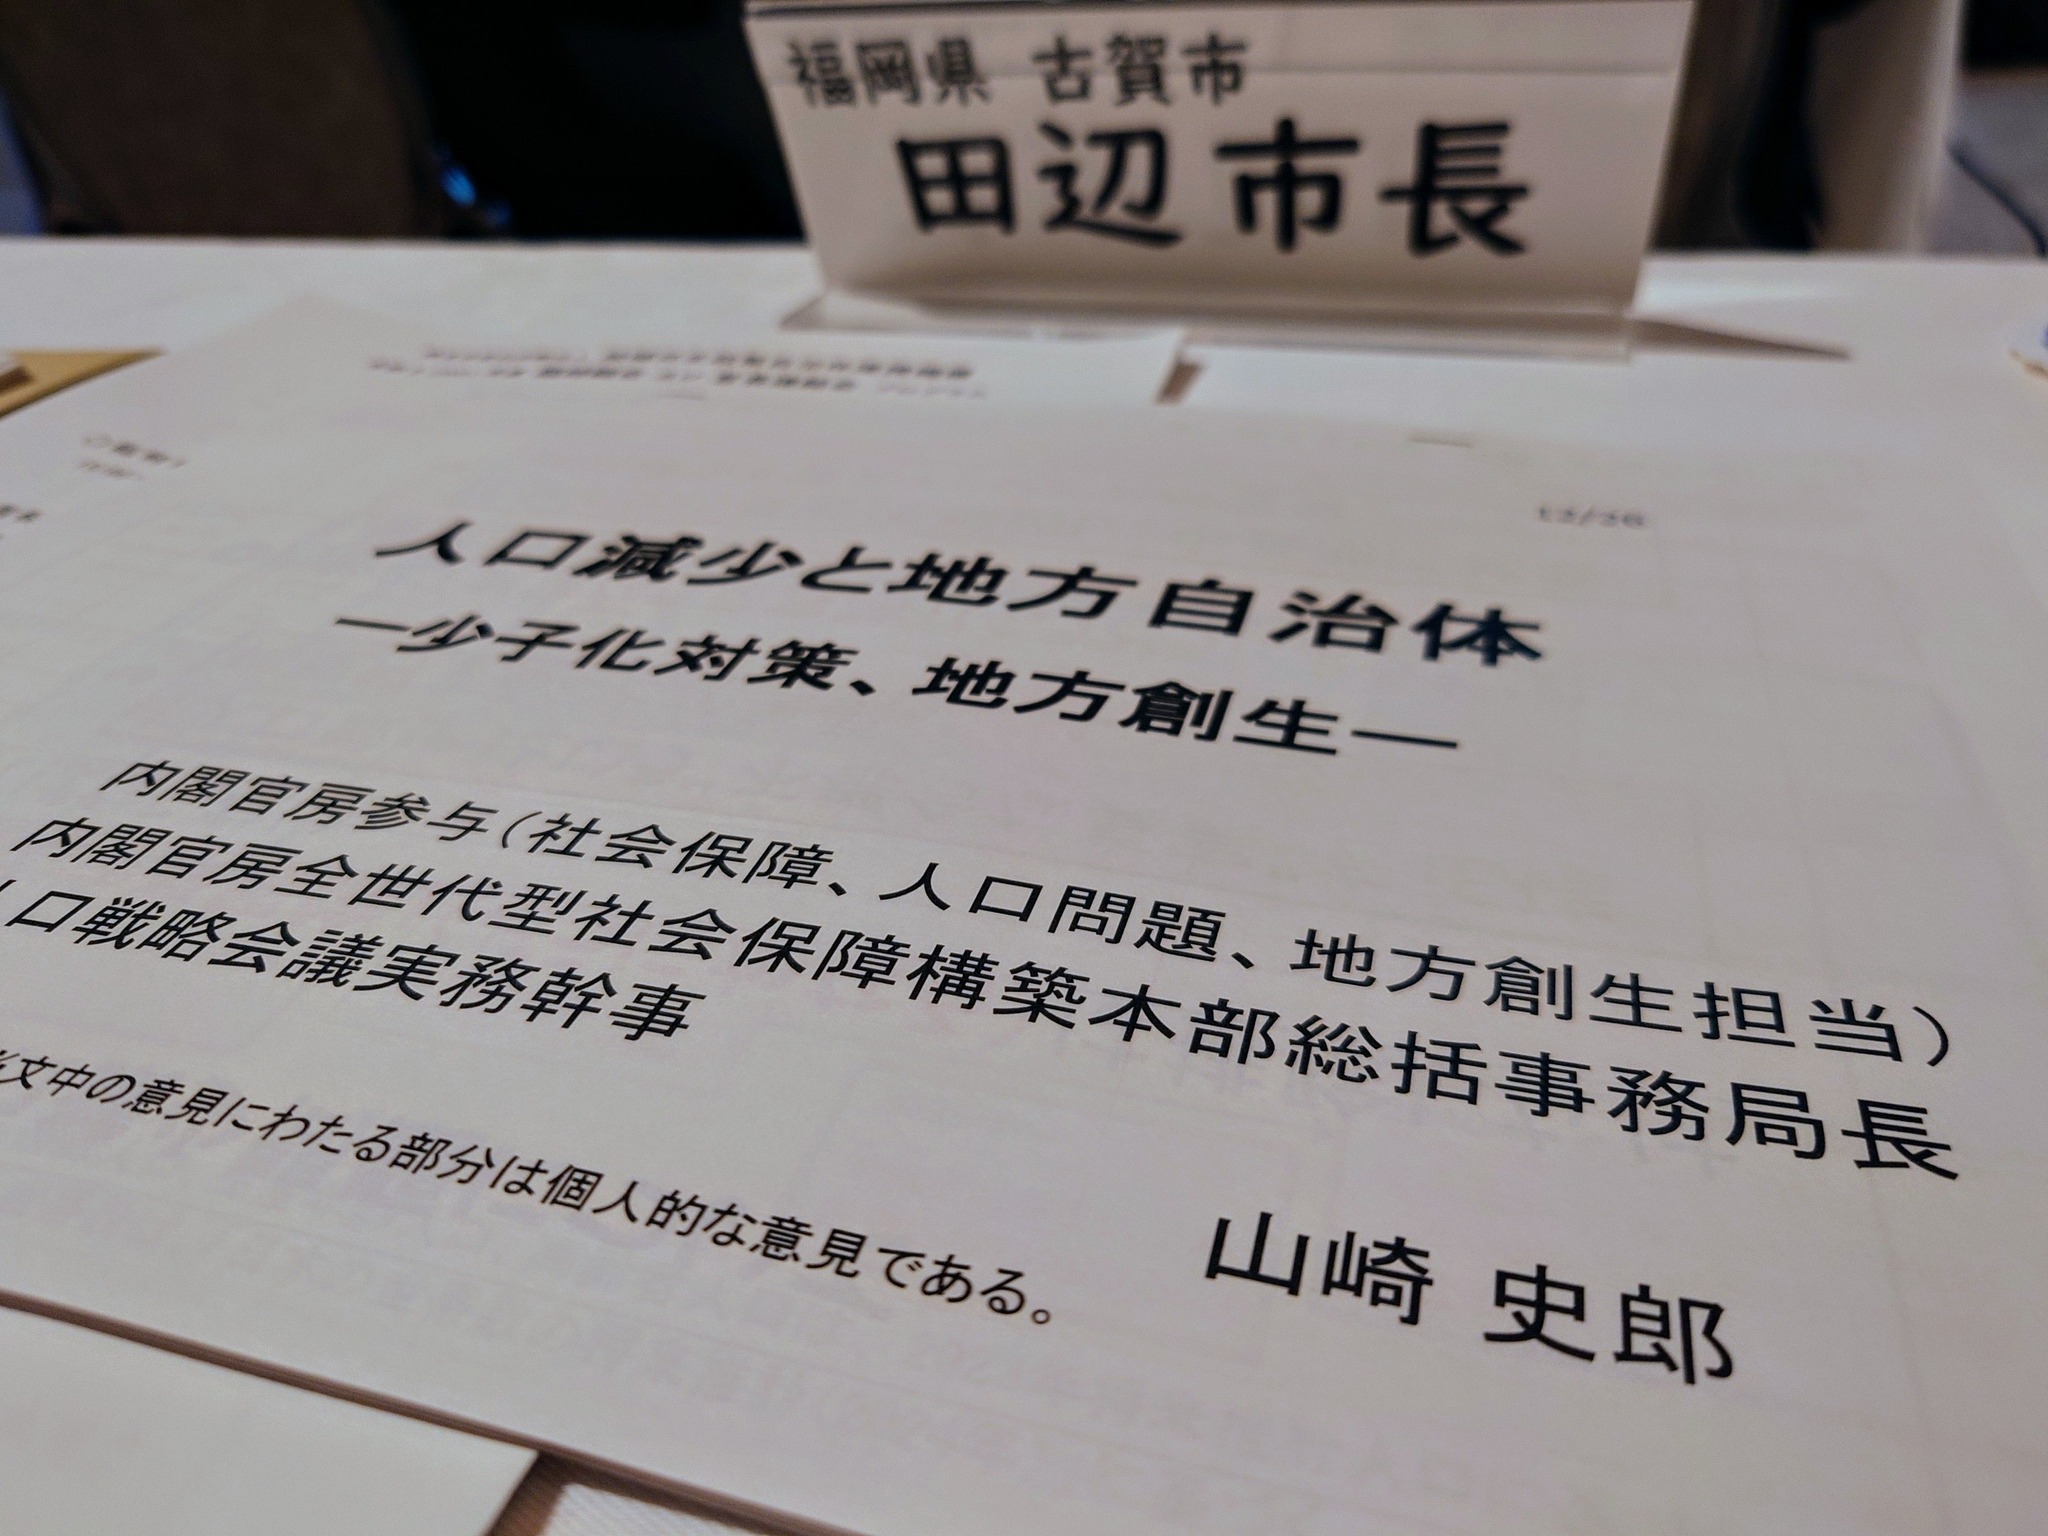 福岡県 古賀市
田辺市長
12/26
人口減少と地方自治体
―少子化対策、地方創生―
内閣官房参与（社会保障、人口問題、地方創生担当）
内閣官房全世代型社会保障構築本部総括事務局長
口戦略会議実務幹事
文中の意見にわたる部分は個人的な意見である。
山崎 史郎